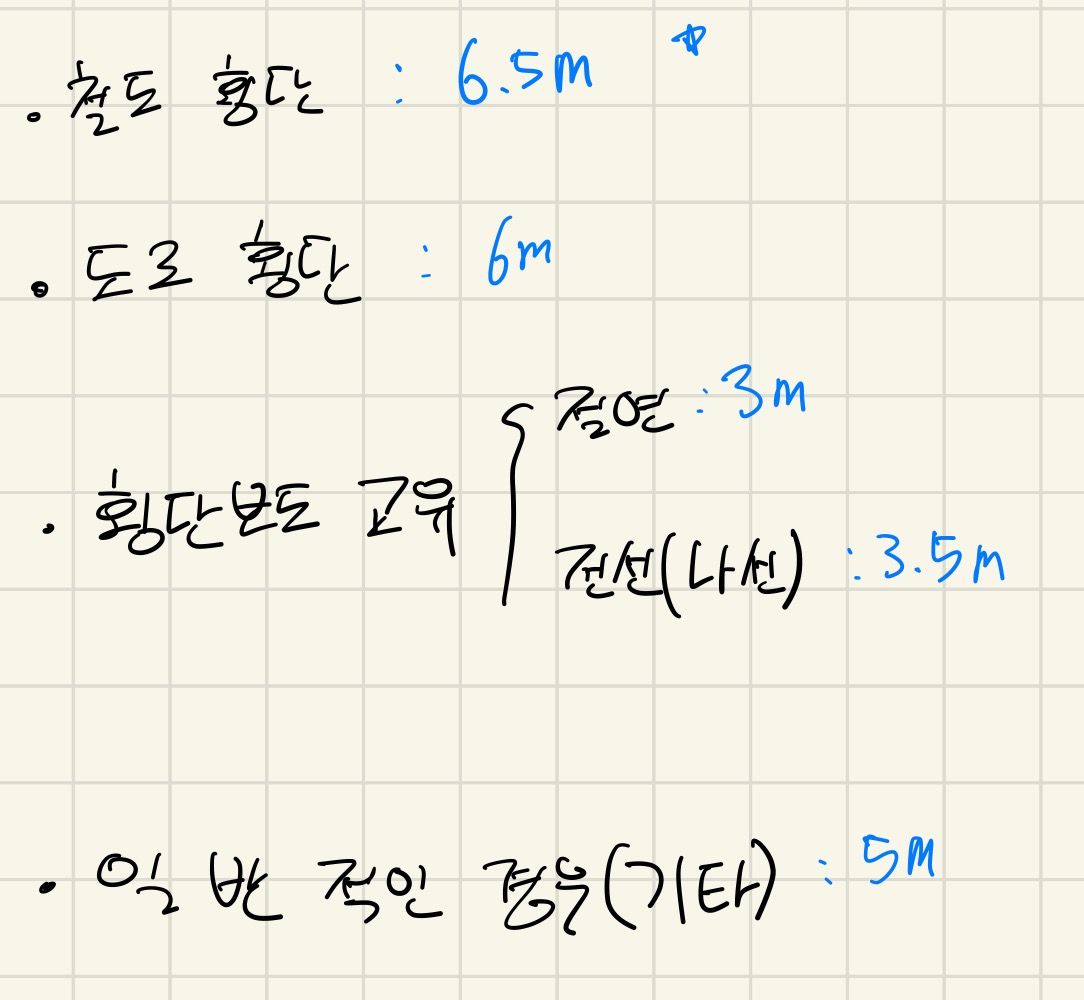 . 철도 횡단 : 6.5m ☆
. 도로 횡단 : 6m
절연 : 3m
. 횡단보도 교위 {
전선(나선) : 3.5m
. 일반적인 경우(기타) : 5m